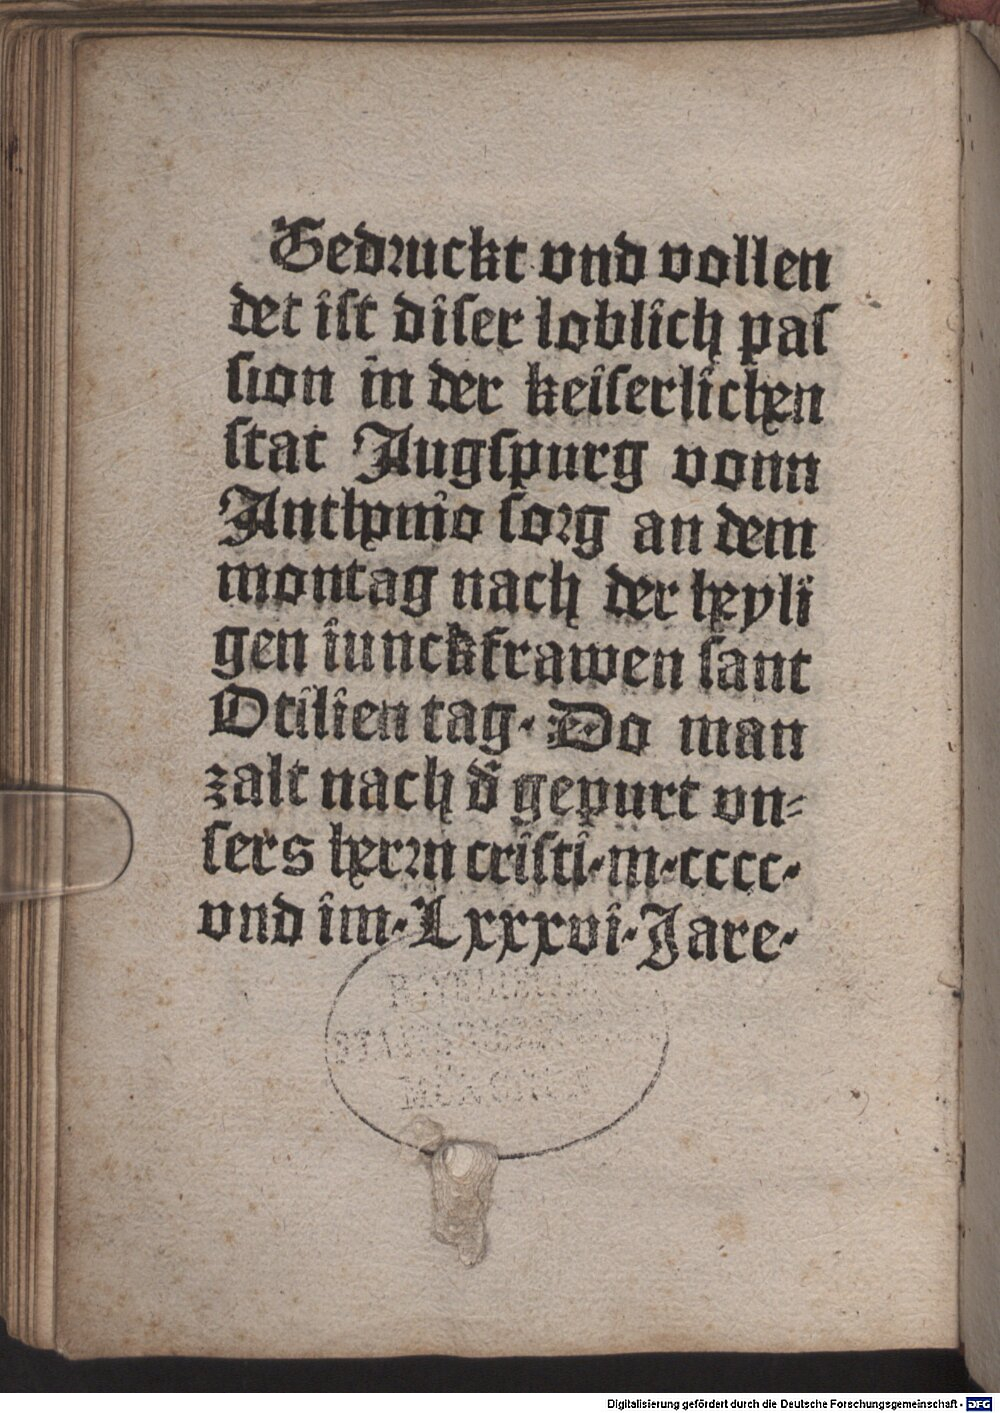 Gedruckt vnd vollen
det ist diser loblich pas
sion in der keiserlichen
stat Augspurg vonn
Anthonio sorg an dem
montag nach der heyli
gen iunckfrawen sant
Otilien tag. Do man
zalt nach d̄ gepurt vn=
sers herrn cristi.m.cccc.
vnd im.Lxxxvi.Jare.
MÜNCHEN
Digitalisierung gefördert durch die Deutsche Forschungsgemeinschaft - DFG